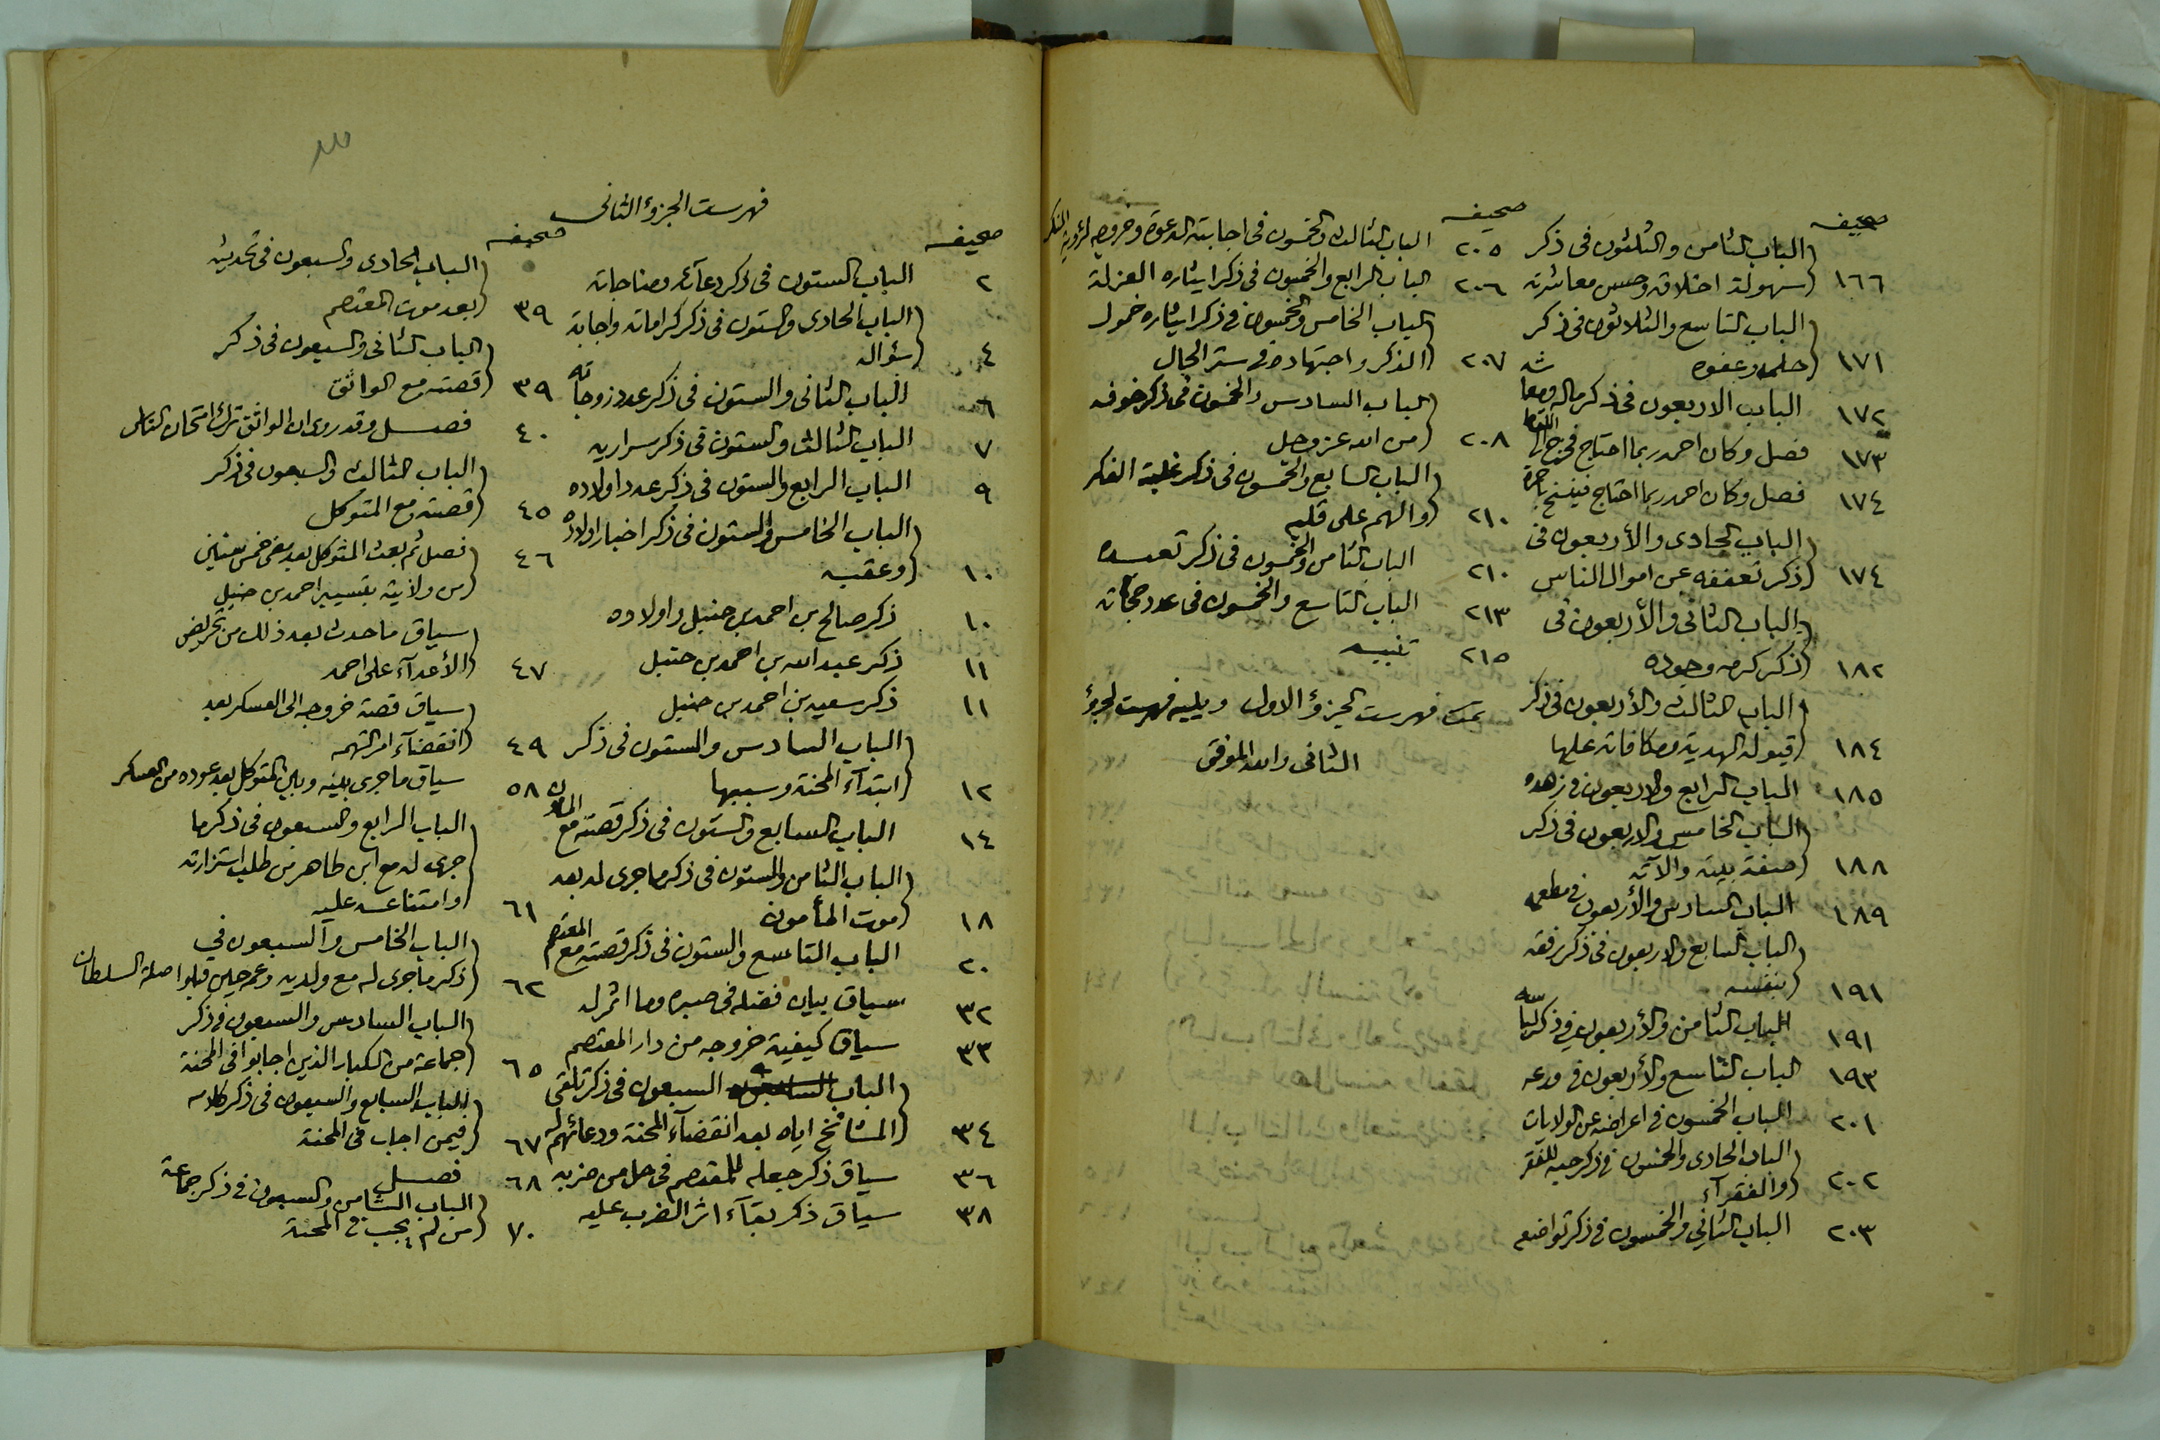 صحيفه
الباب الثامن والثلثون فى ذكر
١٦٦ سهولة اخلاقه وحسن معاشرته
الباب التاسع والثلاثون فى ذكر
١٧١ حلمه وعفوه
١٧٢ الباب الاربعون فى ذكر ماله ومعاشه
١٧٣ فصل وكان احمد ربما احتاج فخرج الى اللقاط
١٧٤ فصل وكان احمد ربما احتاج فينسخ باجرة
الباب الحادى والأربعون فى
١٧٤ ذكر تعففه عن اموال الناس
الباب الثانى والأربعون فى
١٨٢ ذكر كرمه وجوده
الباب الثالث والأربعون فى ذكر
١٨٤ قبوله الهدية ومكافاته عليها
١٨٥ الباب الرابع والاربعون فى زهده
الباب الخامس والاربعون فى ذكر
١٨٨ صفة بيته والآته
١٨٩ الباب السادس والأربعون فى مطعمه
الباب السابع والاربعون فى ذكر رفقه
١٩١ بنفسه
١٩١ الباب الثامن والأربعون فى ذكر لباسه
١٩٣ الباب التاسع والأربعون فى ورعه
٢٠١ الباب الخمسون فى اعراضه عن الولايات
الباب الحادى والخمسون فى ذكر حبه للفقر
٢٠٢ والفقرآء
٢٠٣ الباب الثانى والخمسون فى ذكر تواضعه
صحيفه
٢٠٥ الباب الثالث والخمسون فى اجابته الدعوة وخروجه لرؤية المنكر
٢٠٦ الباب الرابع والخمسون فى ذكر ايثاره العزلة
الباب الخامس والخمسون فى ذكر ايثاره خمول
٢٠٧ الذكر واجتهاده فى ستر الحال
الباب السادس والخمسون فى ذكر خوفه
٢٠٨ من الله عز وجل
الباب السابع والخمسون فى ذكر غلبة الفكر
٢١٠ والهم على قلبه
٢١٠ الباب الثامن والخمسون فى ذكر تعبده
٢١٣ الباب التاسع والخمسون فى عدد حجاته
٢١٥ تنبيه
تمت فهرست الجزؤ الاول ويليه فهرست الجزؤ
الثانى والله الموفق
فهرست الجزؤ الثانى
صحيفه
٢ الباب الستون فى ذكر دعآئه ومناجاته
الباب الحادى والستون فى ذكر كراماته واجابة
٤ سؤاله
٦ الباب الثانى والستون فى ذكر عدد زوجاته
٧ الباب الثالث والستون فى ذكر سراريه
٩ الباب الرابع والستون فى ذكر عدد اولاده
الباب الخامس والستون فى ذكر اخبار اولاده
١٠ وعقبه
١٠ ذكر صالح بن احمد بن حنبل واولاده
١١ ذكر عبد الله بن احمد بن حنبل
١١ ذكر سعيد بن احمد بن حنبل
الباب السادس والستون فى ذكر
١٢ ابتدآء المحنة وسببها
١٤ الباب السابع والستون فى ذكر قصته مع المأمون
الباب الثامن والستون فى ذكر ماجرى له بعد
١٨ موت المأمون
٢٠ الباب التاسع والستون فى ذكر قصته مع المعتصم
٣٢ سياق بيان فضله فى صبره وما اثر له
٣٣ سياق كيفية خروجه من دار المعتصم
الباب السبعون فى ذكر تلقى
٣٤ المشائخ اياه بعد انقضآء المحنة ودعائهم له
٣٦ سياق ذكر جعله للمعتصم فى حل من ضربه
٣٨ سياق ذكر بقآء اثر الضرب عليه
صحيفه
الباب الحادى والسبعون فى تحديثه
٣٩ بعد موت المعتصم
الباب الثانى والسبعون فى ذكر
٣٩ قصته مع الواثق
٤٠ فصل وقد روى ان الواثق ترك امتحان الناس
الباب الثالث والسبعون فى ذكر
٤٥ قصته مع المتوكل
٤٦ فصل ثم بعث المتوكل بعد مضى خمس سنين
من ولايته بتسيير احمد بن حنبل
سياق ماحدث بعد ذلك من تحريض
٤٧ الأعدآء على احمد
سياق قصة خروجه الى العسكر بعد
٤٩ انقضآء امر التهمه
٥٨ سياق ماجرى بينه وبين المتوكل بعد عوده من العسكر
الباب الرابع والسبعون فى ذكر ما
جرى له مع ابن طاهر من طلب استزارته
٦١ وامتناعه عليه
الباب الخامس والسبعون في
٦٢ ذكر ماجرى له مع ولديه وعم حين قبلوا صلة السلطان
الباب السادس والسبعون فى ذكر
٦٥ جماعة من الكبار الذين اجابوا فى المحنة
الباب السابع والسبعون فى ذكر كلامه
٦٧ فيمن اجاب فى المحنة
٦٨ فصل
الباب الثامن والسبعون فى ذكر جماعة
٧٠ من لم يجب فى المحنة